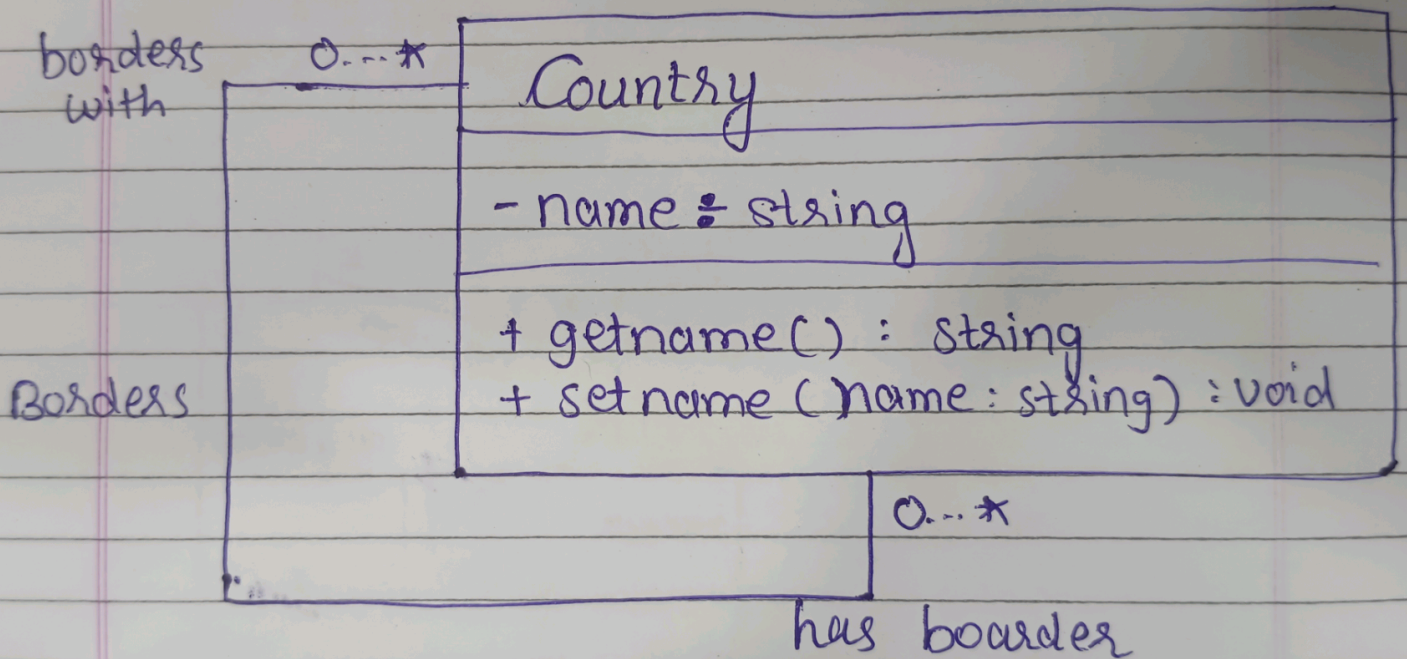 borders
with
0...*
Country
- name : string
+ getname() : string
Borders
+ setname (name : string) : void
0...*
has boarder